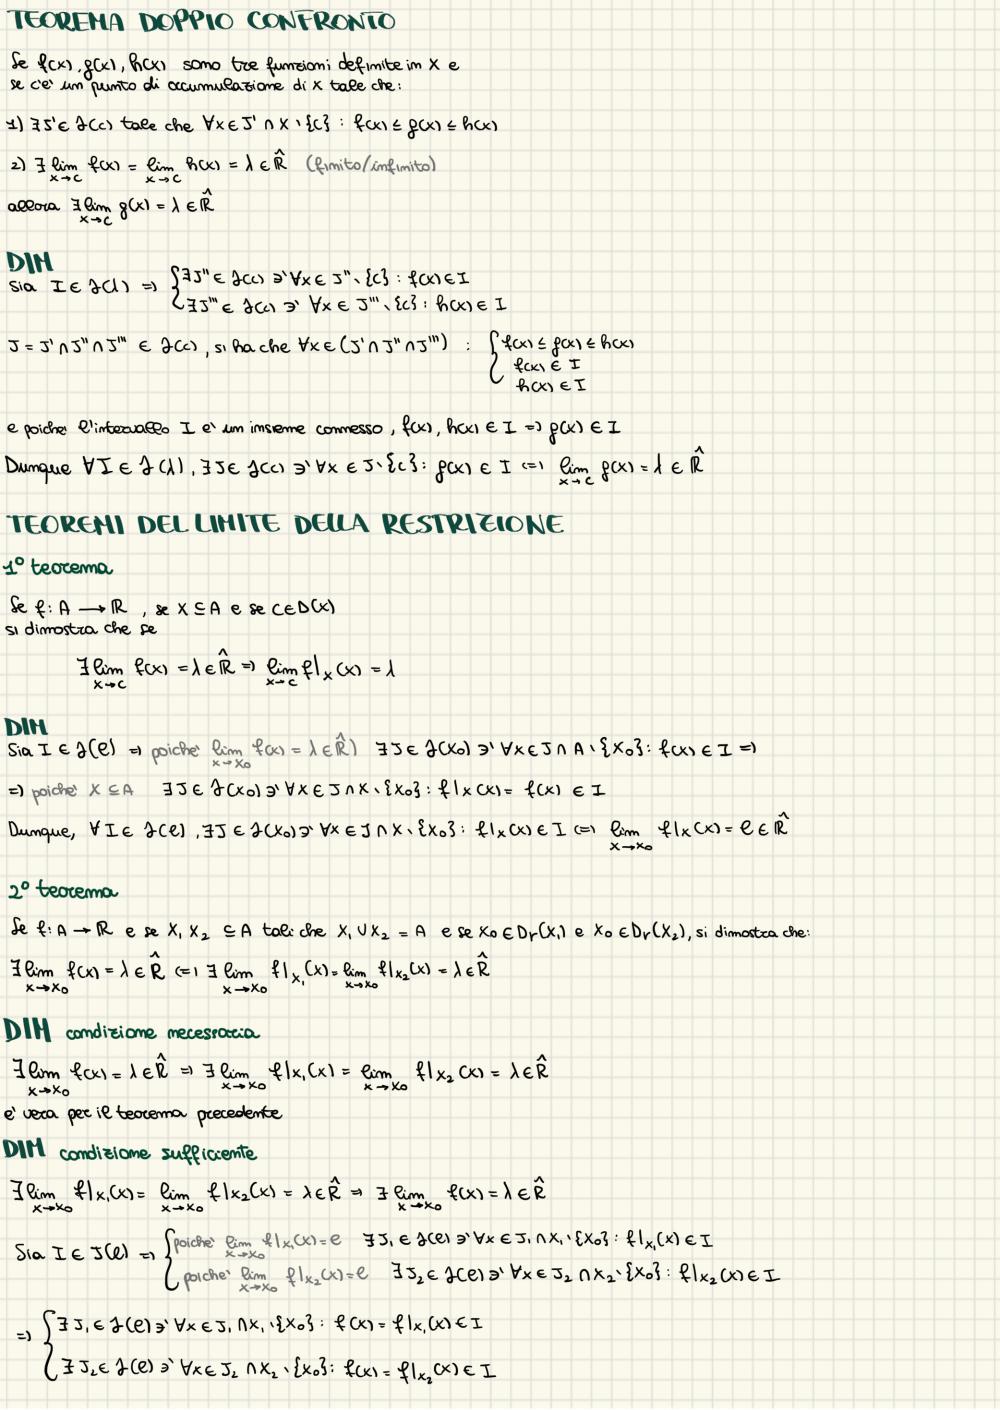 TEOREMA DOPPIO CONFRONTO
Se f(x), g(x), h(x) sono tre funzioni definite in X e
se c'e' un punto di accumulazione di X tale che:
1) ∃J'∈ J(c) tale che ∀x∈J'∩X\{c} : f(x) ≤ g(x) ≤ h(x)
2) ∃ lim x→c f(x) = lim x→c h(x) = λ ∈ R̂ (finito/infinito)
allora ∃ lim x→c g(x) = λ ∈ R̂
DIM
Sia I ∈ J(λ) => { ∃J'' ∈ J(c) ∋' ∀x ∈ J''\{c} : f(x) ∈ I
∃J''' ∈ J(c) ∋' ∀x ∈ J'''\{c} : h(x) ∈ I
J = J'∩J''∩J''' ∈ J(c), si ha che ∀x∈(J'∩J''∩J''') : { f(x) ≤ g(x) ≤ h(x)
f(x) ∈ I
h(x) ∈ I
e poiche' l'intervallo I e' un insieme connesso, f(x), h(x) ∈ I => g(x) ∈ I
Dunque ∀I ∈ J(λ), ∃J∈ J(c) ∋' ∀x ∈ J\{c}: g(x) ∈ I <=> lim x→c g(x) = λ ∈ R̂
TEOREMI DEL LIMITE DELLA RESTRIZIONE
1° teorema
Se f: A → R , se X ⊆ A e se c∈D(x)
si dimostra che se
∃ lim x→c f(x) = λ ∈ R̂ => lim x→c f|x (x) = λ
DIM
Sia I ∈ J(e) => poiche' lim x→x0 f(x) = λ ∈ R̂) ∃J∈ J(x0) ∋' ∀x∈J∩A\{x0}: f(x) ∈ I =>
=> poiche' X ⊆ A ∃J∈ J(x0) ∋' ∀x∈J∩X\{x0} : f|x (x) = f(x) ∈ I
Dunque, ∀I∈ J(e), ∃J∈ J(x0) ∋' ∀x∈J∩X\{x0}: f|x (x) ∈ I <=> lim x→x0 f|x (x) = e ∈ R̂
2° teorema
Se f: A → R e se X, X2 ⊆ A tali che X1 ∪ X2 = A e se x0∈Dr(X1) e x0∈Dr(X2), si dimostra che:
∃ lim x→x0 f(x) = λ ∈ R̂ <=> ∃ lim x→x0 f|x1 (x) = lim x→x0 f|x2 (x) = λ ∈ R̂
DIM condizione necessaria
∃ lim x→x0 f(x) = λ ∈ R̂ => ∃ lim x→x0 f|x1 (x) = lim x→x0 f|x2 (x) = λ ∈ R̂
e' vera per il teorema precedente
DIM condizione sufficiente
∃ lim x→x0 f|x1 (x) = lim x→x0 f|x2 (x) = λ ∈ R̂ => ∃ lim x→x0 f(x) = λ ∈ R̂
Sia I ∈ J(e) => { poiche' lim x→x0 f|x1 (x) = e ∃J1 ∈ J(e) ∋' ∀x ∈ J1 ∩X1\{x0} : f|x1 (x) ∈ I
poiche' lim x→x0 f|x2 (x) = e ∃J2 ∈ J(e) ∋' ∀x ∈ J2 ∩X2\{x0} : f|x2 (x) ∈ I
=> { ∃J1 ∈ J(e) ∋' ∀x ∈ J1 ∩X1\{x0} : f(x) = f|x1 (x) ∈ I
∃J2 ∈ J(e) ∋' ∀x ∈ J2 ∩X2\{x0} : f(x) = f|x2 (x) ∈ I